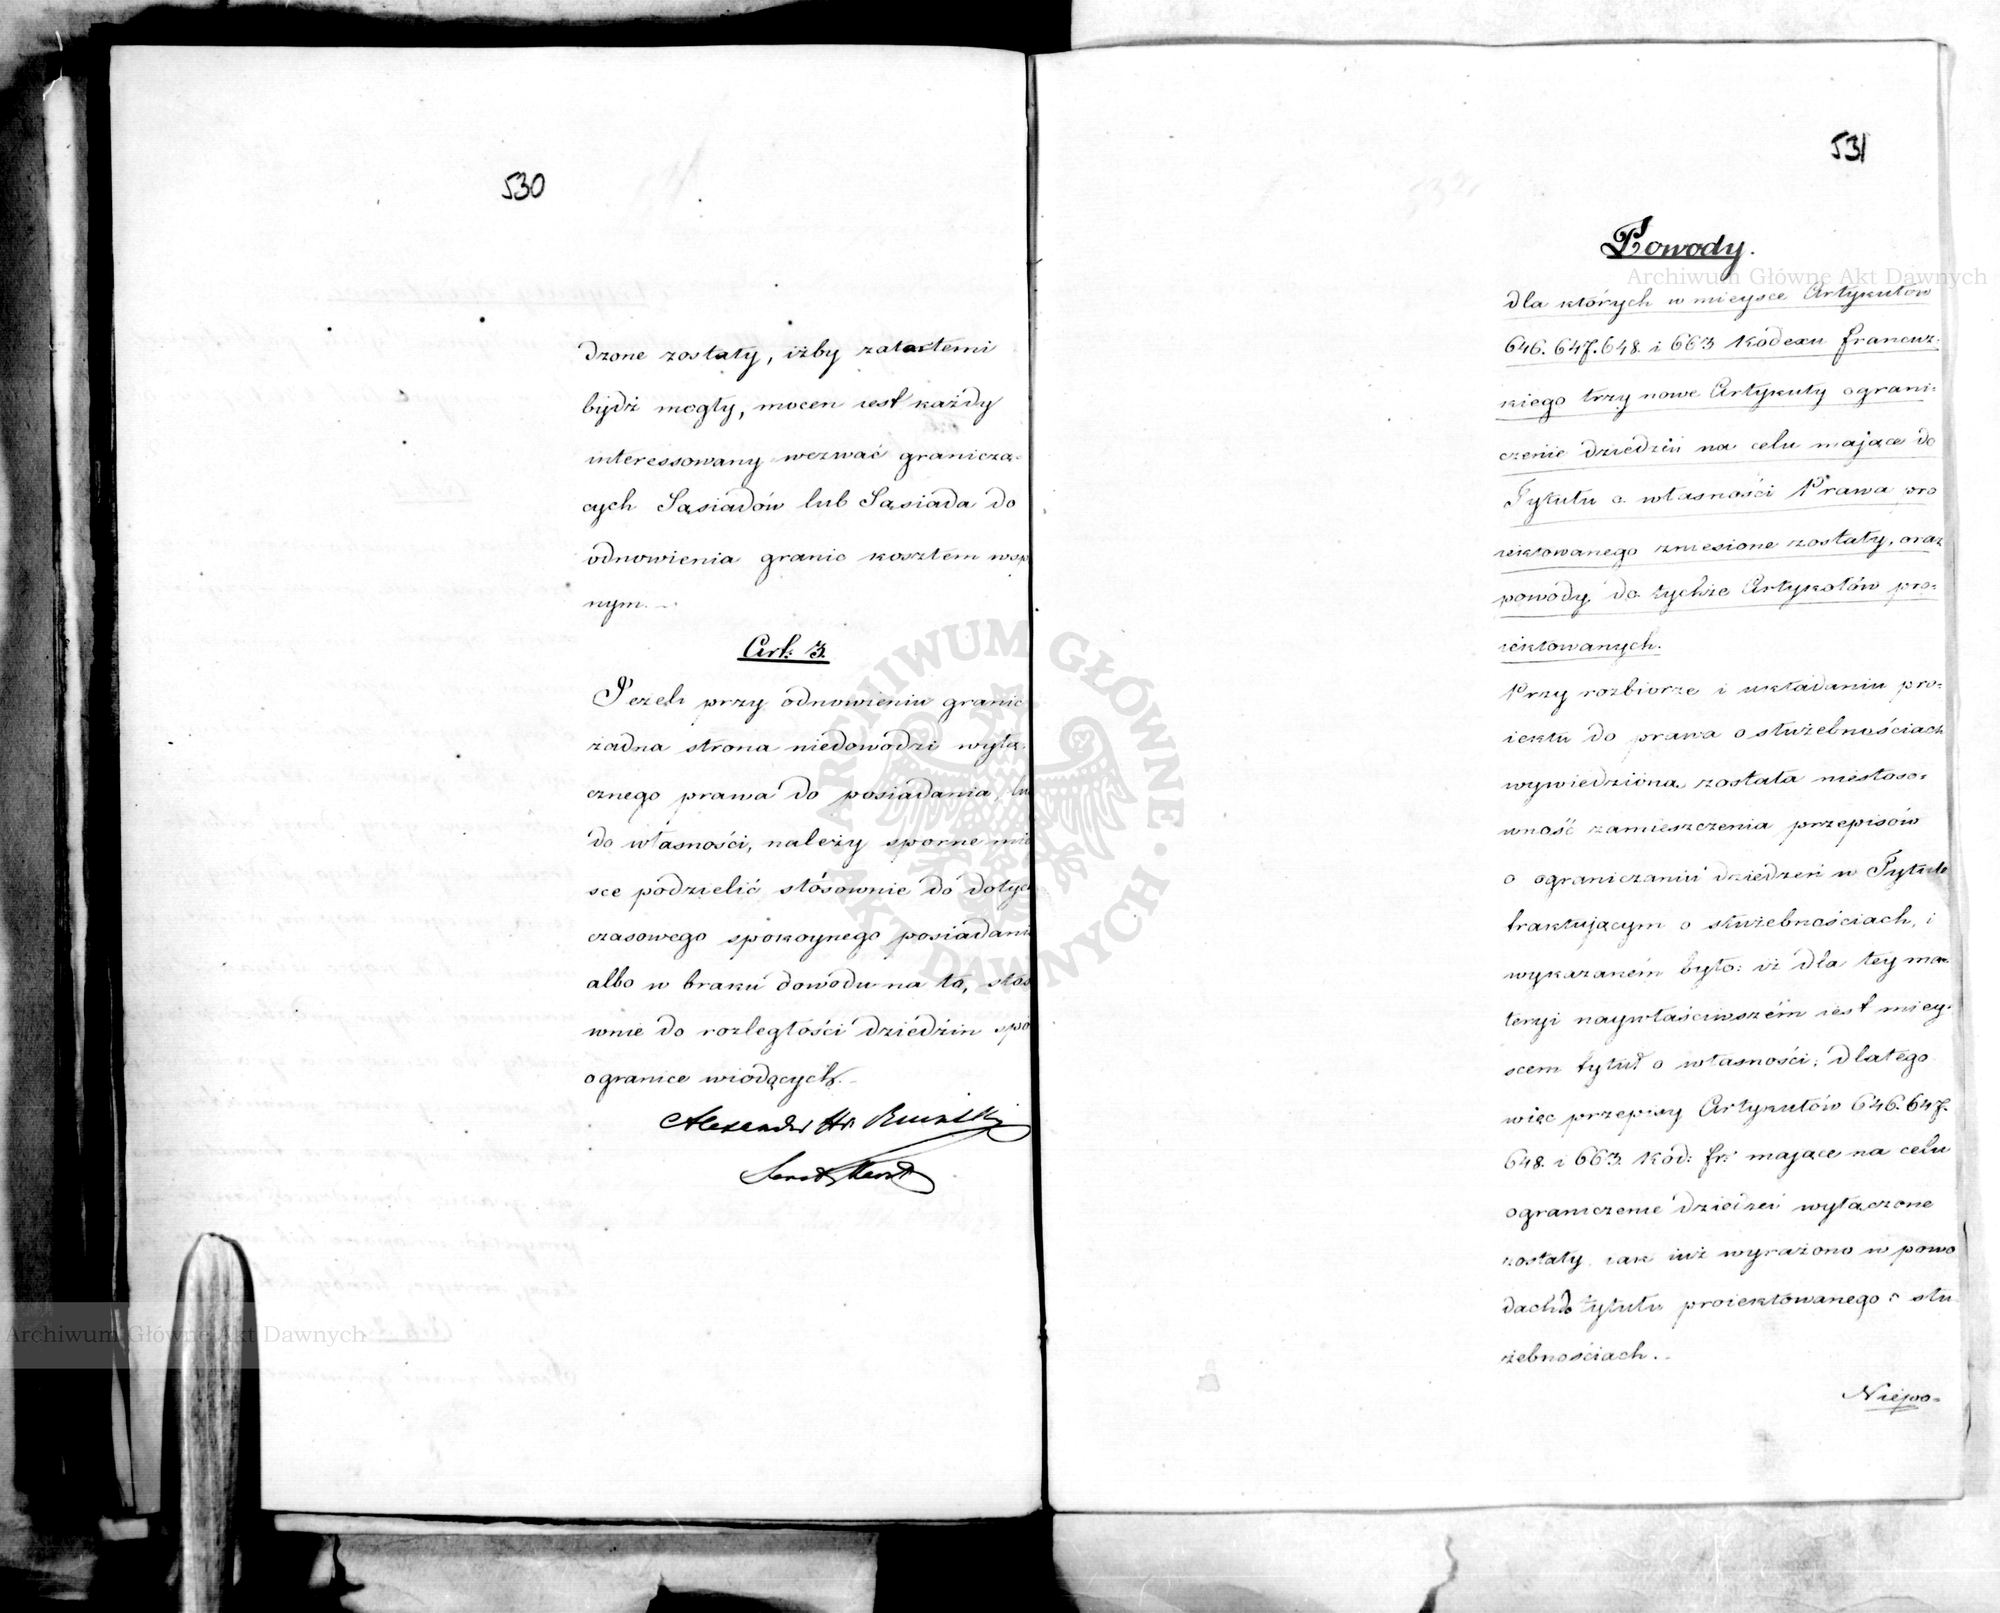 530
dzone zostały, iżby zatartemi
bydź mogły, mocen iest każdy
interessowany wezwać granicza-
cych Sąsiadów lub Sąsiada do
odnowienia granic kosztem wsp
nym.
Art: 3.
Jeżeli przy odnowieniu granic
żadna strona niedowodzi wyłą-
cznego prawa do posiadania, lu
do własności, należy sporne mie
sce podzielić stósownie do dotych
czasowego spokoynego posiadani
albo w braku dowodu na to, stos
wnie do rozległości dziedzin spó
o granice wiodących.
Alexander Hr
531
Powody.
dla których w mieysce Artykułów
646. 647. 648. i 663 Kodexu francuz-
kiego trzy nowe Artykuły ograni-
czenie dziedzin na celu mające do
Tytułu o własności Prawa pro
iektowanego zniesione zostały, oraz
powody do tychże Artykołów pro-
iektowanych.
Przy rozbiorze i układaniu pro-
iektu do prawa o służebnościach
wywiedziona została niestoso-
wność zamieszczenia przepisów
o ograniczaniu dziedzin w Tytule
traktującym o służebnościach, i
wykazanem było: iż dla tey ma-
teryi naywłaściwszém iest miey-
scem tytuł o własności; dlatego
więc przepisy Artykułów 646. 647.
648. i 663. Kod: fr: mające na celu
ograniczenie dziedzin wyłączone
zostały, iak iuż wyrażono w powo
dach do tytułu proiektowanego o słu
żebnościach.
Niepo-
Archiwum Główne Akt Dawnych
Archiwum Główne Akt Dawnych
ARCHIWUM GŁÓWNE AKT DAWNYCH